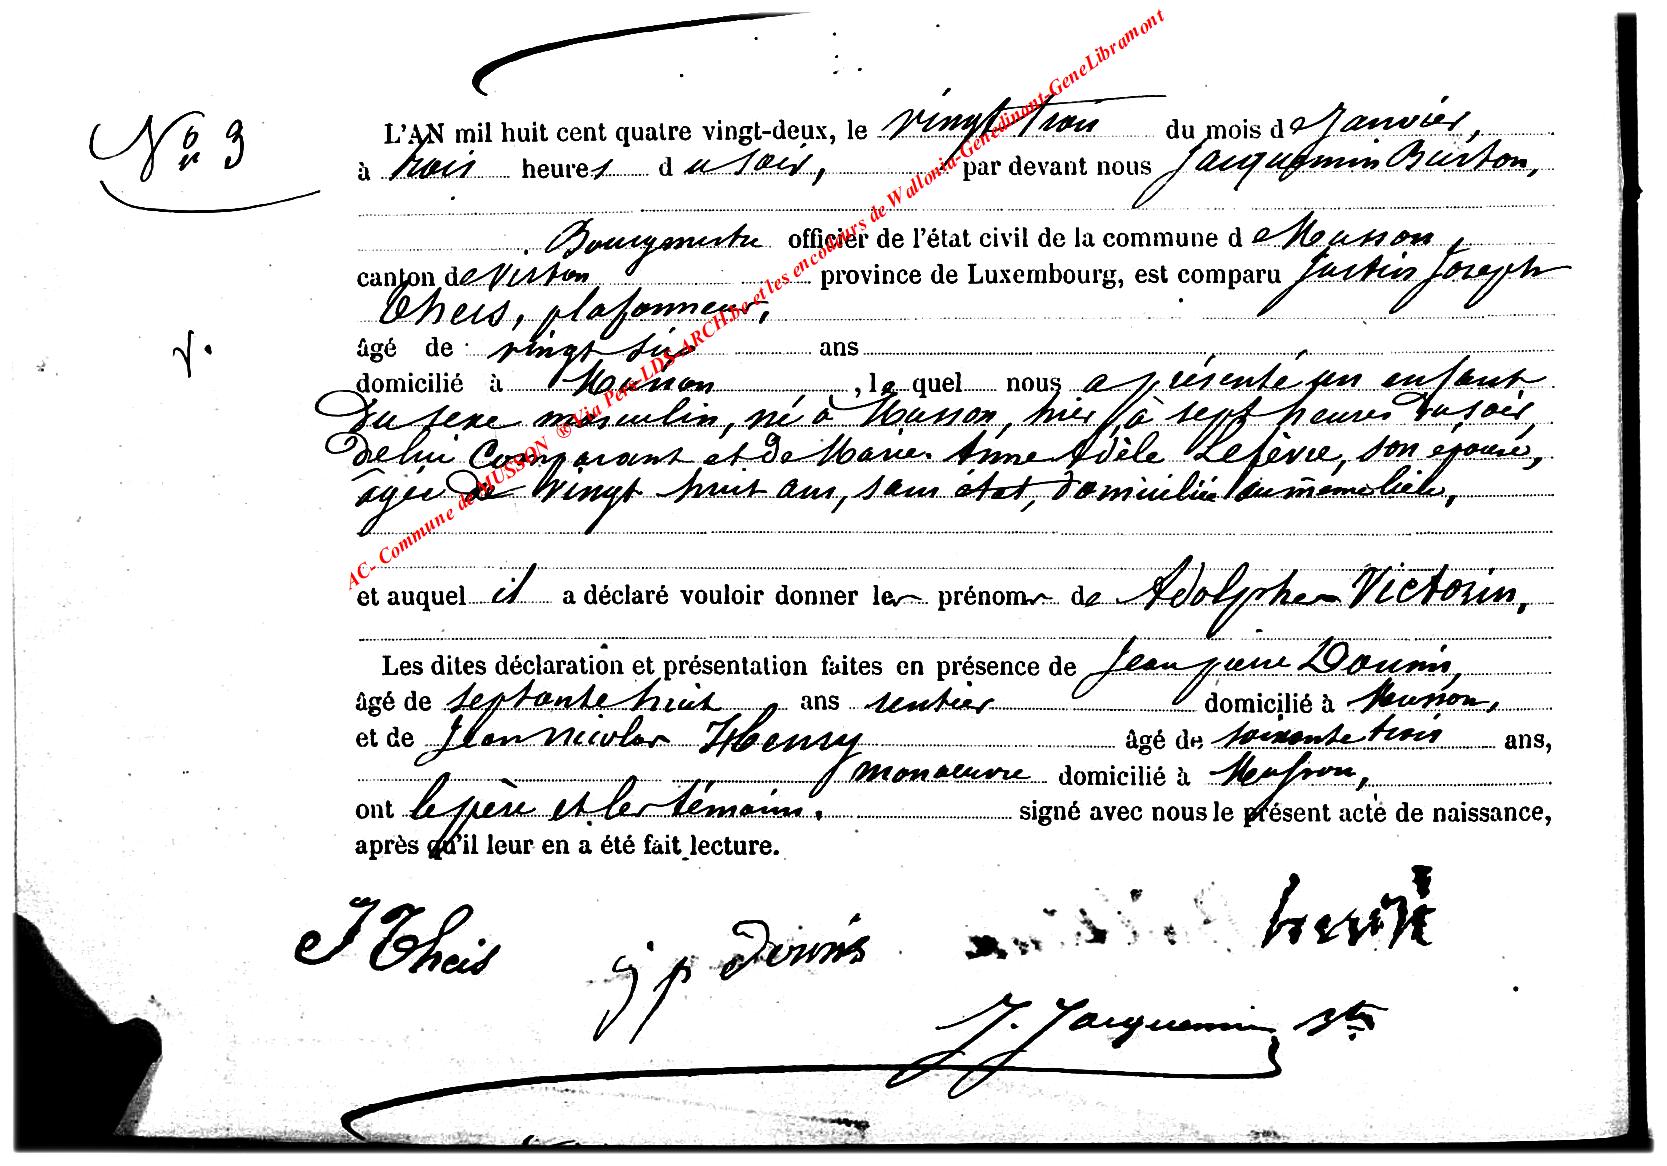 No 3
L'AN mil huit cent quatre vingt-deux, le vingt trois du mois de Janvier,
à trois heures du soir, par devant nous Jacquemin Burton,
Bourgmestre officier de l'état civil de la commune de Musson,
canton de Virton province de Luxembourg, est comparu Justin Joseph
Theis, plafonneur,
âgé de vingt six ans
domicilié à Musson, lequel nous a présenté un enfant
du sexe masculin, né à Musson, hier, à sept heures du soir,
de lui comparant et de Marie Anne Adèle Lefèvre, son épouse,
âgée de vingt huit ans, sans état, domiciliée au même lieu,
et auquel il a déclaré vouloir donner les prénoms de Adolphe Victorin,
Les dites déclaration et présentation faites en présence de Jean pierre
âgé de septante huit ans rentier domicilié à Musson,
et de Jean Nicolas Henry âgé de soixante trois ans,
manoeuvre domicilié à Musson,
ont le père et les témoins, signé avec nous le présent acte de naissance,
après qu'il leur en a été fait lecture.
J Theis
j p
J. Jacquemin
AC- Commune de MUSSON ® Via Pero-LDS-ARCH.be et les encodeurs de Wallonia-Genedinant-GeneLibramont